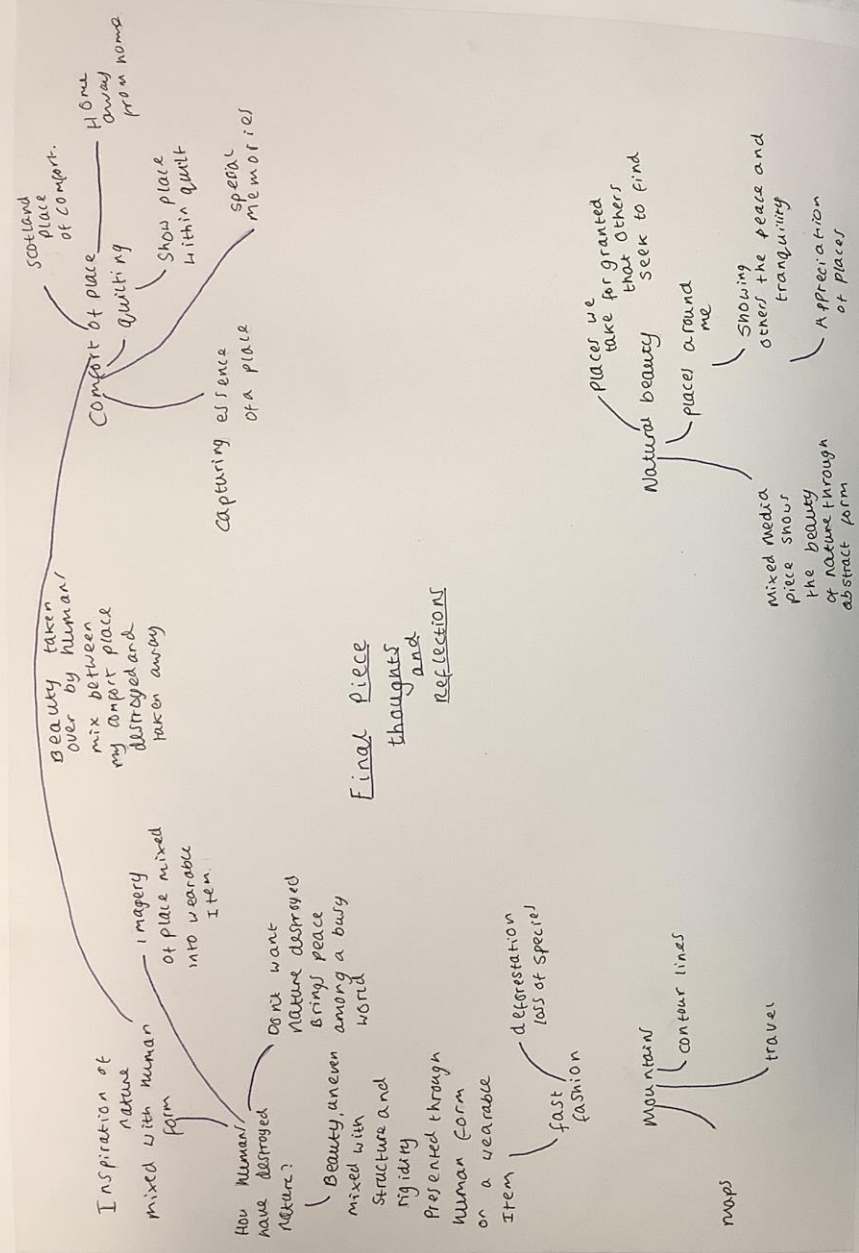 Inspiration of
nature
mixed with human
form
Imagery
of place mixed
into wearable
Item
How humans
have destroyed
nature?
Dont want
nature destroyed
Brings peace
among a busy
world
Beauty, uneven
mixed with
structure and
rigidity
Presented through
human form
on a wearable
Item
fast
fashion
deforestation
loss of species
Beauty taken
over by humans
mix between
my comfort place
destroyed and
taken away
Comfort of place
Scotland
place
of comfort.
Home
away
from home
quilting
Show place
within quilt
special
memories
capturing essence
of a place
Final Piece
thoughts
and
Reflections
Mountain
contour lines
travel
maps
Natural beauty
places we
take for granted
that others
seek to find
places around
me
showing
others the peace and
tranquility
Appreciation
of places
Mixed media
piece shows
the beauty
of nature through
abstract form